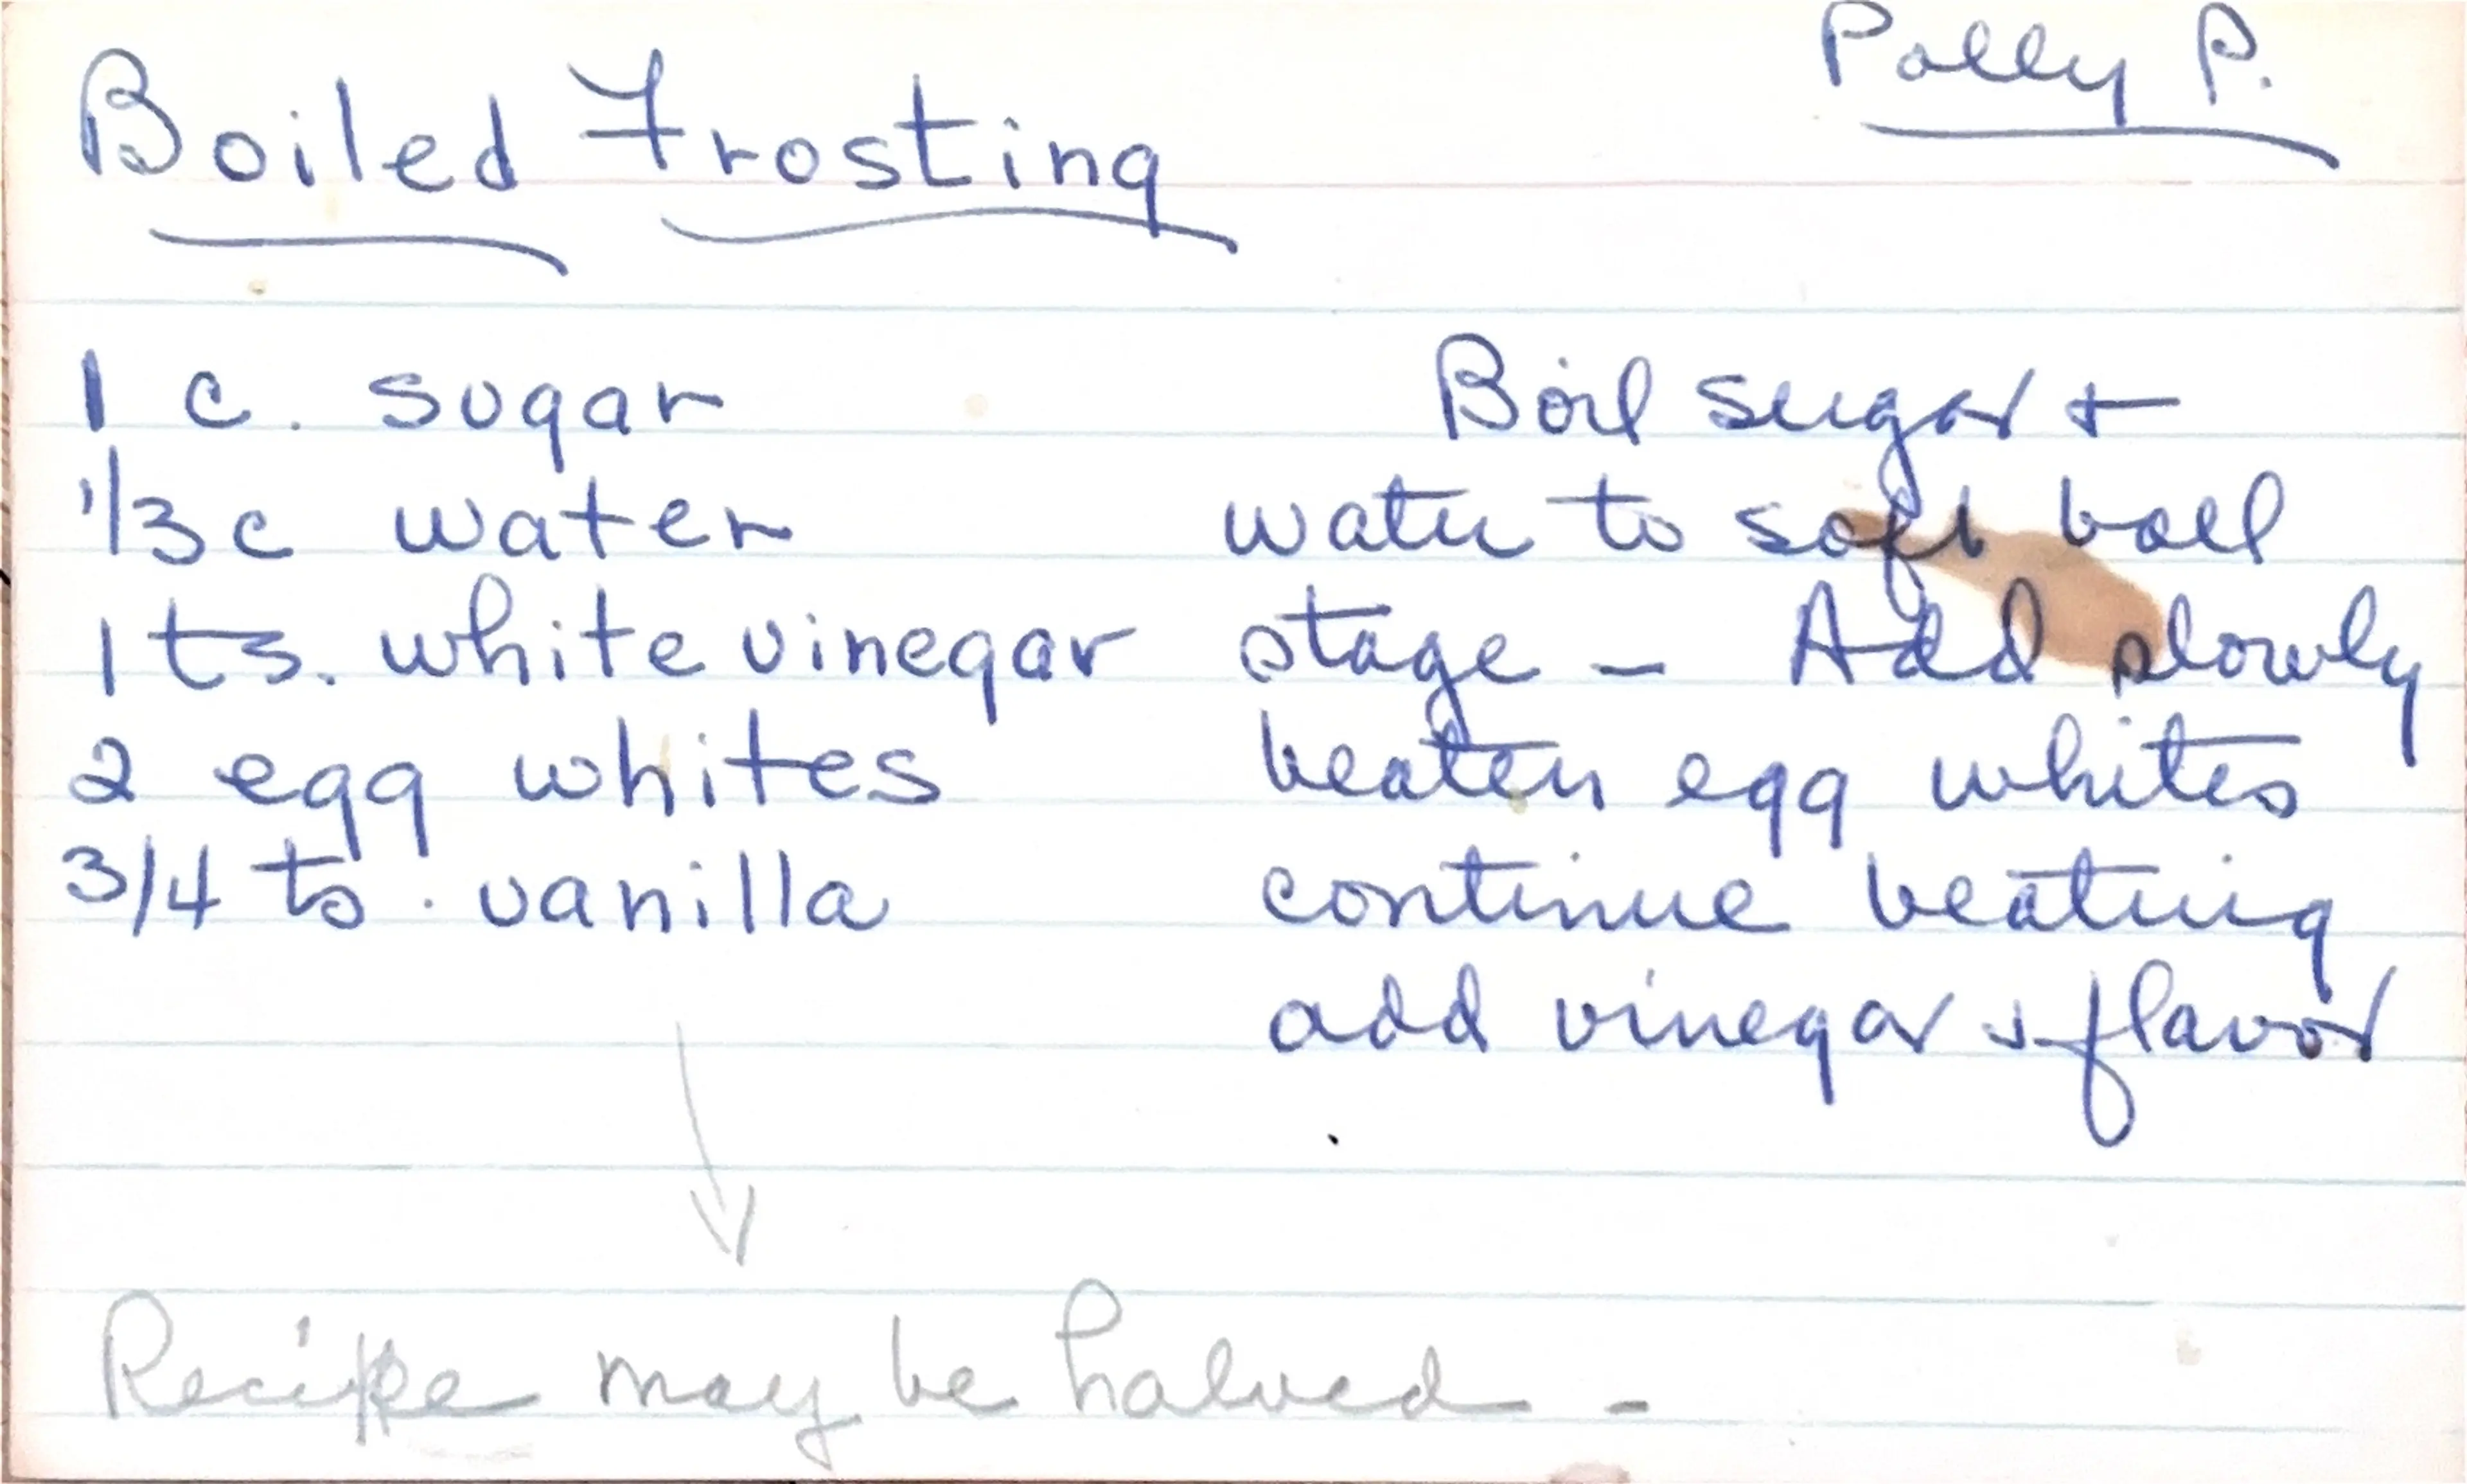 Boiled Frosting
Polly P.
1 c. sugar
1/3 c water
1 ts. white vinegar
2 egg whites
3/4 ts. vanilla
Boil sugar +
water to soft ball
stage - Add slowly
beaten egg whites
continue beating
add vinegar + flavor
Recipe may be halved -